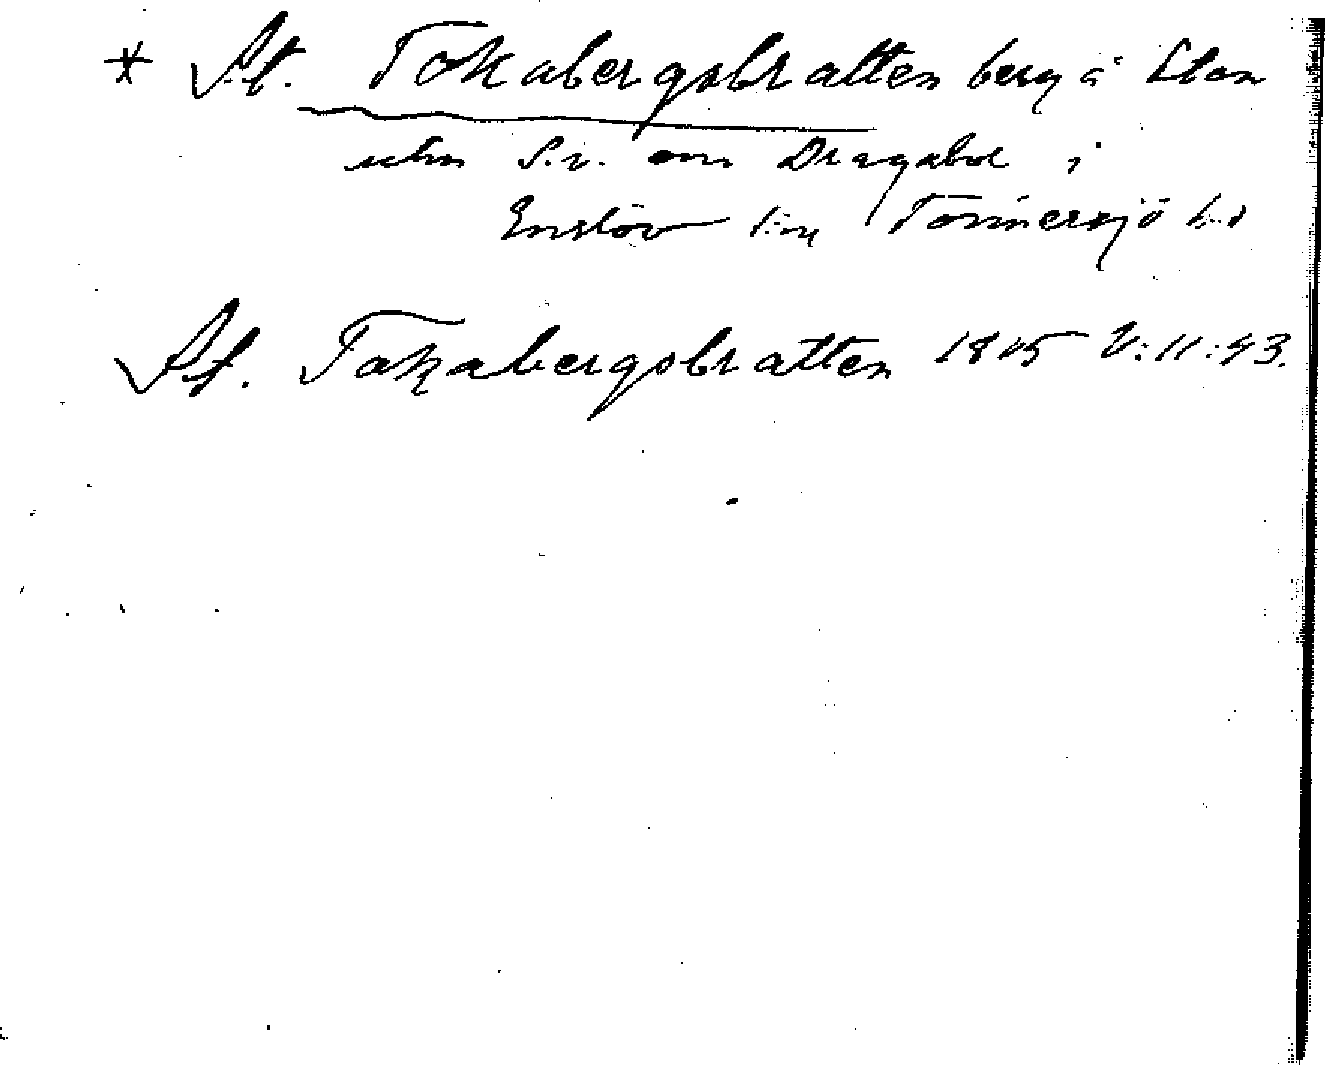 * St. Tokabergsbratten berg å
S.v. om Dragabol i
Enslöv Tönnersjö hd
St. Takabergsbratten 1815 V:11:43.